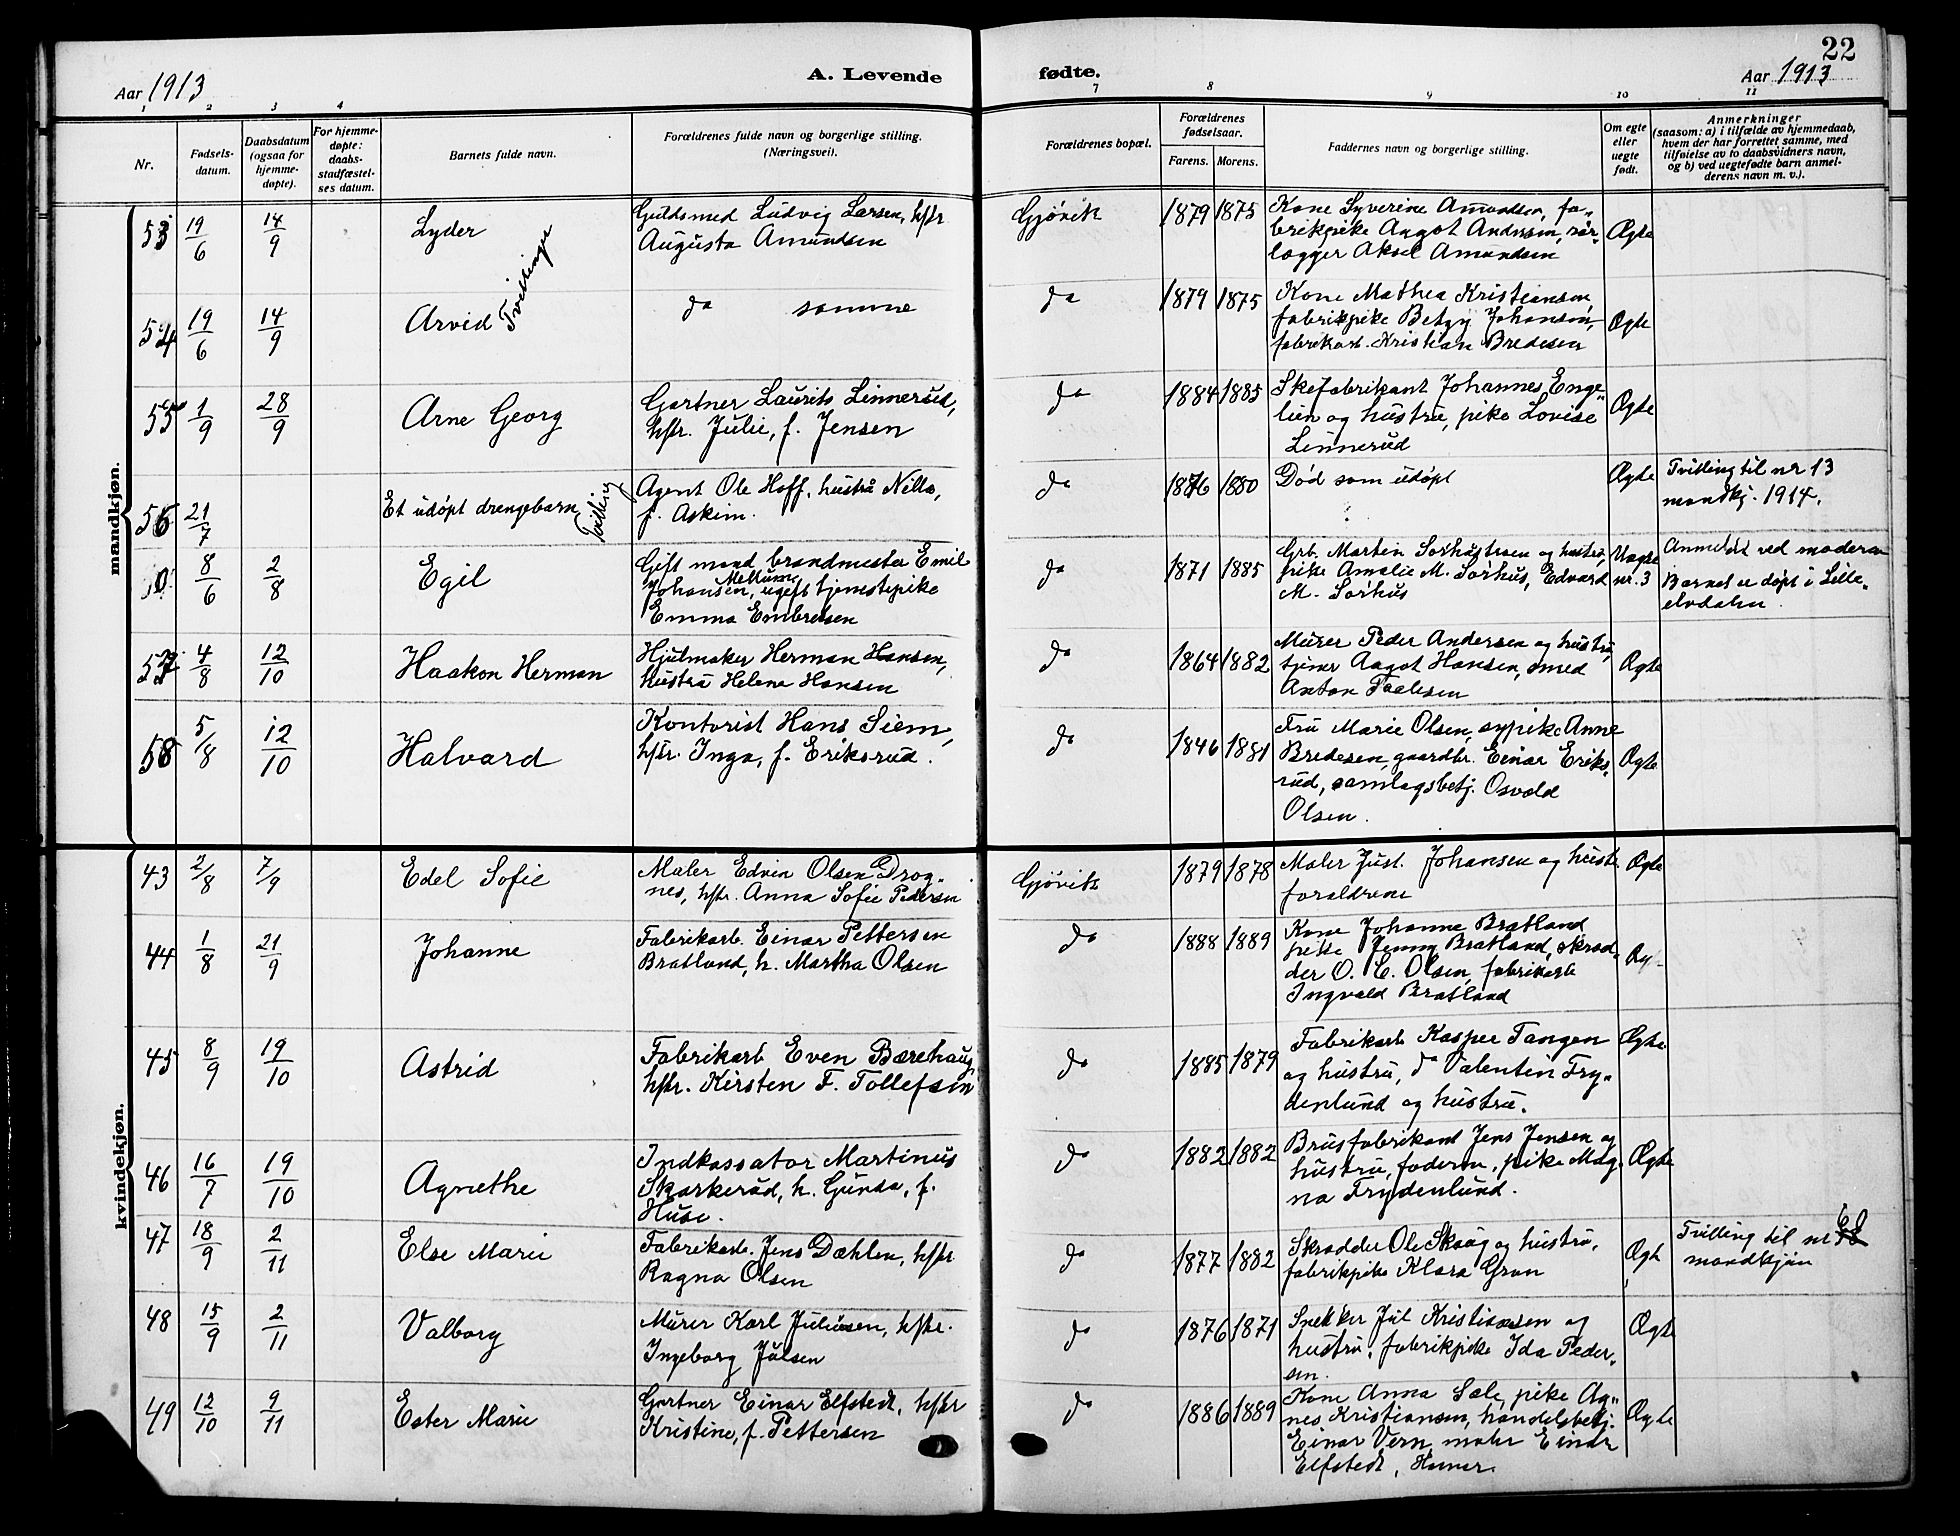 22
Aar 1913
A. Levende
fødte.
Aar 1913
1 2 3 4
7 8 9 10 11
Nr.
Fødsels-
datum.
Daabsdatum
(ogsaa for
hjemme-
døpte).
For hjemme-
døpte:
daabs-
stadfæstel-
ses datum.
Barnets fulde navn.
Forældrenes fulde navn og borgerlige stilling.
(Næringsvei).
Forældrenes bopæl.
Forældrenes
fødselsaar.
Farens. Morens.
Faddernes navn og borgerlige stilling.
Om egte
eller
uegte
født.
Anmerkninger
(saasom: a) i tilfælde av hjemmedaab,
hvem der har forrettet samme, med
tilføielse av to daabsvidners navn,
og b) ved uegtefødte barn anmel-
derens navn m. v.).
mandkjøn.
53 19/6 14/9 Lyder
Guldsmed Ludvig Larsen, hstr
Augusta Amundsen
Gjøvik 1879 1875
Kone Syverine Amundsen, fa-
brikpike Aagot Andersen, rør-
lægger Aksel Amundsen
Ægte
Tvillinger
54 19/6 14/9 Arvid
do samme
do 1879 1875
Kone Mathea Kristiansen,
fabrikpike Betzy Johansen,
fabrikarb. Kristian Bredesen
Ægte
55 1/9 28/9 Arne Georg
Gartner Laurits Linnerud,
hstr. Julie, f. Jensen
do 1884 1885
Skofabrikant Johannes Enge-
lien og hustru, pike Lovise
Linnerud
Ægte
56 21/7 Et udøpt drengebarn
Tvilling
Agent Ole Hoff, hustru Nilla,
f. Askim.
do 1876 1880
Død som udøpt
Ægte
Tvilling til nr 13
mandkj. 1914.
0. 8/6 2/8 Egil
Gift mand brandmester Emil
Johansen Mellum, ugift tjenestepike
Emma Embretsen
do 1871 1885
Grb. Martin Sørhustroen og hustru,
pike Amalie M. Sørhus, Edvard
M. Sørhus
Uægte
nr. 3
Anmeldt ved moderen
Barnet er døpt i Lille-
elvdalen.
57 4/8 12/10 Haakon Herman
Hjulmaker Herman Hansen,
hustru Helene Hansen
do 1864 1882
Murer Peder Andersen og hustru,
tjener Aagot Hansen, smed
Anton Paulsen
Ægte
58 5/8 12/10 Halvard
Kontorist Hans Siem,
hstr. Inga, f. Eriksrud.
do 1846 1881
Fru Marie Olsen, sypike Anne
Bredesen, gaardbr. Einar Eriks-
rud, samlagsbetj. Osvald
Olsen.
Ægte
kvindekjøn.
43 2/8 7/9 Edel Sofie
Maler Edvin Olsen Drog-
nes, hstr. Anna Sofie Pedersen
Gjøvik 1879 1878
Maler Just. Johansen og hustr.
forældrene
Ægte
44 1/8 21/9 Johanne
Fabrikarb. Einar Pettersen
Bratland, h. Martha Olsen
do 1888 1889
Kone Johanne Bratland
pike Jenny Bratland, skræd-
der O. E. Olsen, fabrikarb
Ingvald Bratland
Æg
45 8/9 19/10 Astrid
Fabrikarb Even Bærehaug,
hstr. Kirsten F. Tollefsen
do 1885 1879
Fabrikarb Kasper Tangen
og hustru, do Valentin Fry-
denlund og hustru.
Ægte
46 16/7 19/10 Agnethe
Indkassator Martinus
Skarkerud, h. Gunda, f.
Huse.
do 1882 1882
Brusfabrikant Jens Jensen og
hustru, faderen, pike Mag-
na Frydenlund.
Ægte
47 18/9 2/11 Else Marie
Fabrikarb. Jens Dæhlen, hstr
Ragna Olsen
do 1877 1882
Skrædder Ole Skaug og hustru,
fabrikpike Klara Gran
Ægt
Tvilling til nr 68
mandkjøn
48 15/9 2/11 Valborg
Murer Karl Juliusen, hstr.
Ingeborg Julsen
do 1876 1871
Snekker Jul Kristiansen og
hustru, fabrikpike Ida Peder-
sen.
Ægte
49 12/10 9/11 Ester Marie
Gartner Einar Elfstedt, hstr
Kristine, f. Pettersen
do 1886 1889
Kone Anna Sale, pike Ag-
nes Kristiansen, handelsbetj.
Einar Vern, maler Einar
Elfstedt, Hamar.
Ægte